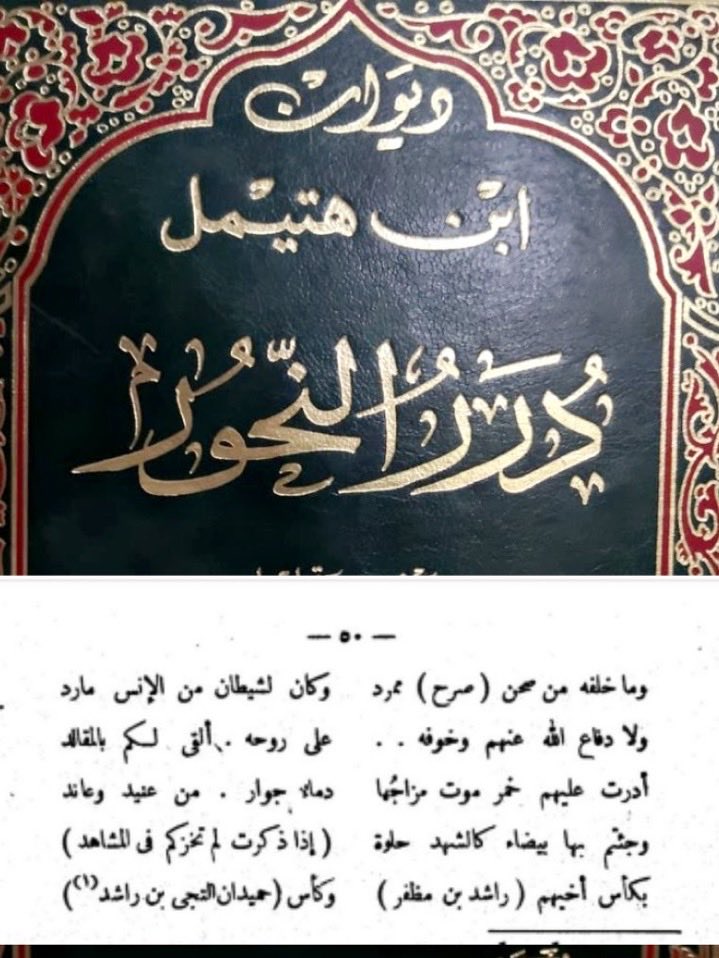 ديوان
ابن هتيمل
دُرَرُ النّحُور
— ٥٠ —
وما خلفه من صحن ( صرح ) ممرد وكان لشيطان من الإنس مارد
ولا دفاع الله عنهم وخوفه . . على روحه . ألقى لكم بالمقالد
أدرت عليهم خمر موت مزاجُها دماء جوار . من عنيد وعاند
وجئتم بها بيضاء كالشهد حلوة ( إذا ذكرت لم تخزكم فى المشاهد )
بكأس أخيهم ( راشد بن مظفر ) وكأس ( حميدان التجى بن راشد (١) )